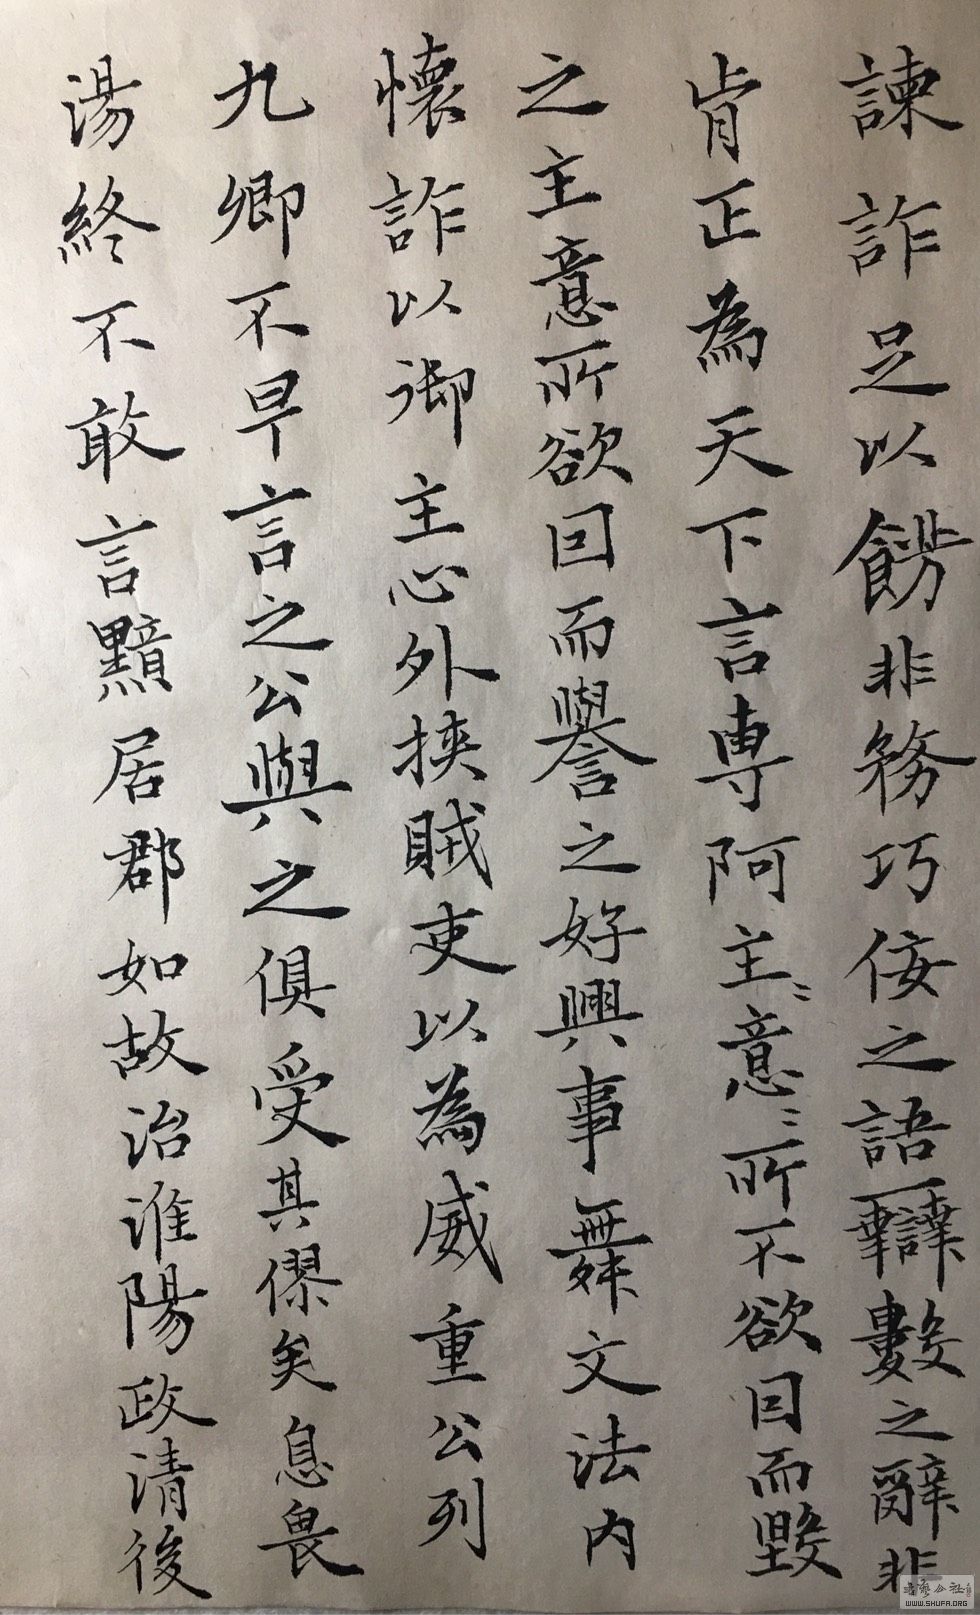 諫詐足以餝非務巧佞之語辯數之辭非
肯正為天下言専阿主〻意〻所不欲因而毀
之主意所欲回而譽之好興事舞文法内
懷詐以御主心外挾賊吏以為威重公列
九卿不早言之公與之俱受其僇矣息畏
湯終不敢言黯居郡如故治淮陽政清後
WWW.SHUFA.ORG